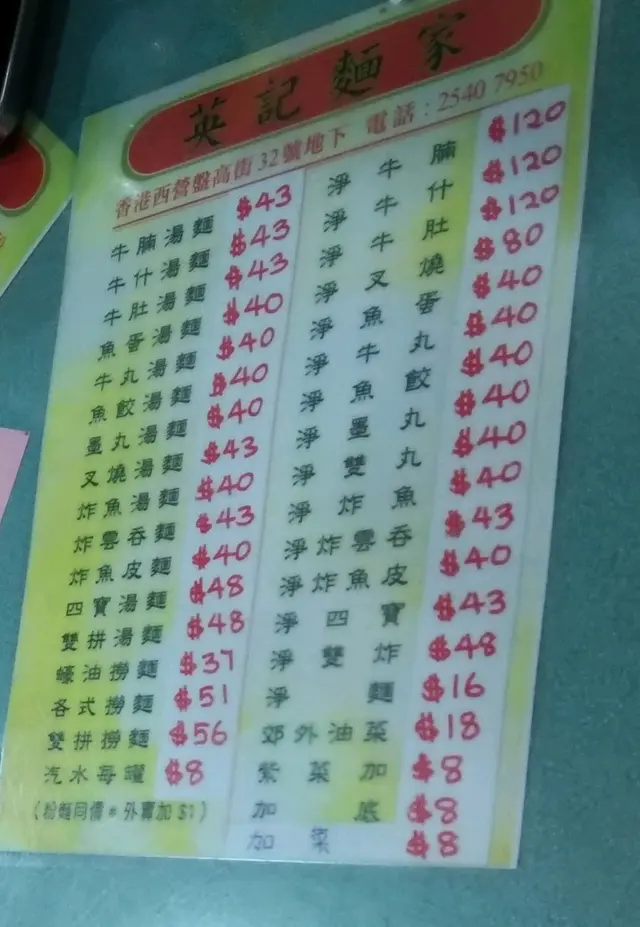 英記麵家
香港西營盤高街32號地下 電話:2540 7950
牛腩湯麵 $43
牛什湯麵 $43
牛肚湯麵 $43
魚蛋湯麵 $40
牛丸湯麵 $40
魚餃湯麵 $40
墨丸湯麵 $40
叉燒湯麵 $43
炸魚湯麵 $40
炸雲吞麵 $43
炸魚皮麵 $40
四寶湯麵 $48
雙拼湯麵 $48
蠔油撈麵 $37
各式撈麵 $51
雙拼撈麵 $56
汽水每罐 $8
(粉麵同價 * 外賣加 $1)
淨牛腩 $120
淨牛什 $120
淨牛肚 $120
淨叉燒 $80
淨魚蛋 $40
淨牛丸 $40
淨魚餃 $40
淨墨丸 $40
淨雙丸 $40
淨炸魚 $40
淨炸雲吞 $43
淨炸魚皮 $40
淨四寶 $43
淨雙炸 $48
淨麵 $16
郊外油菜 $18
紫菜加 $8
加底 $8
加菜 $8